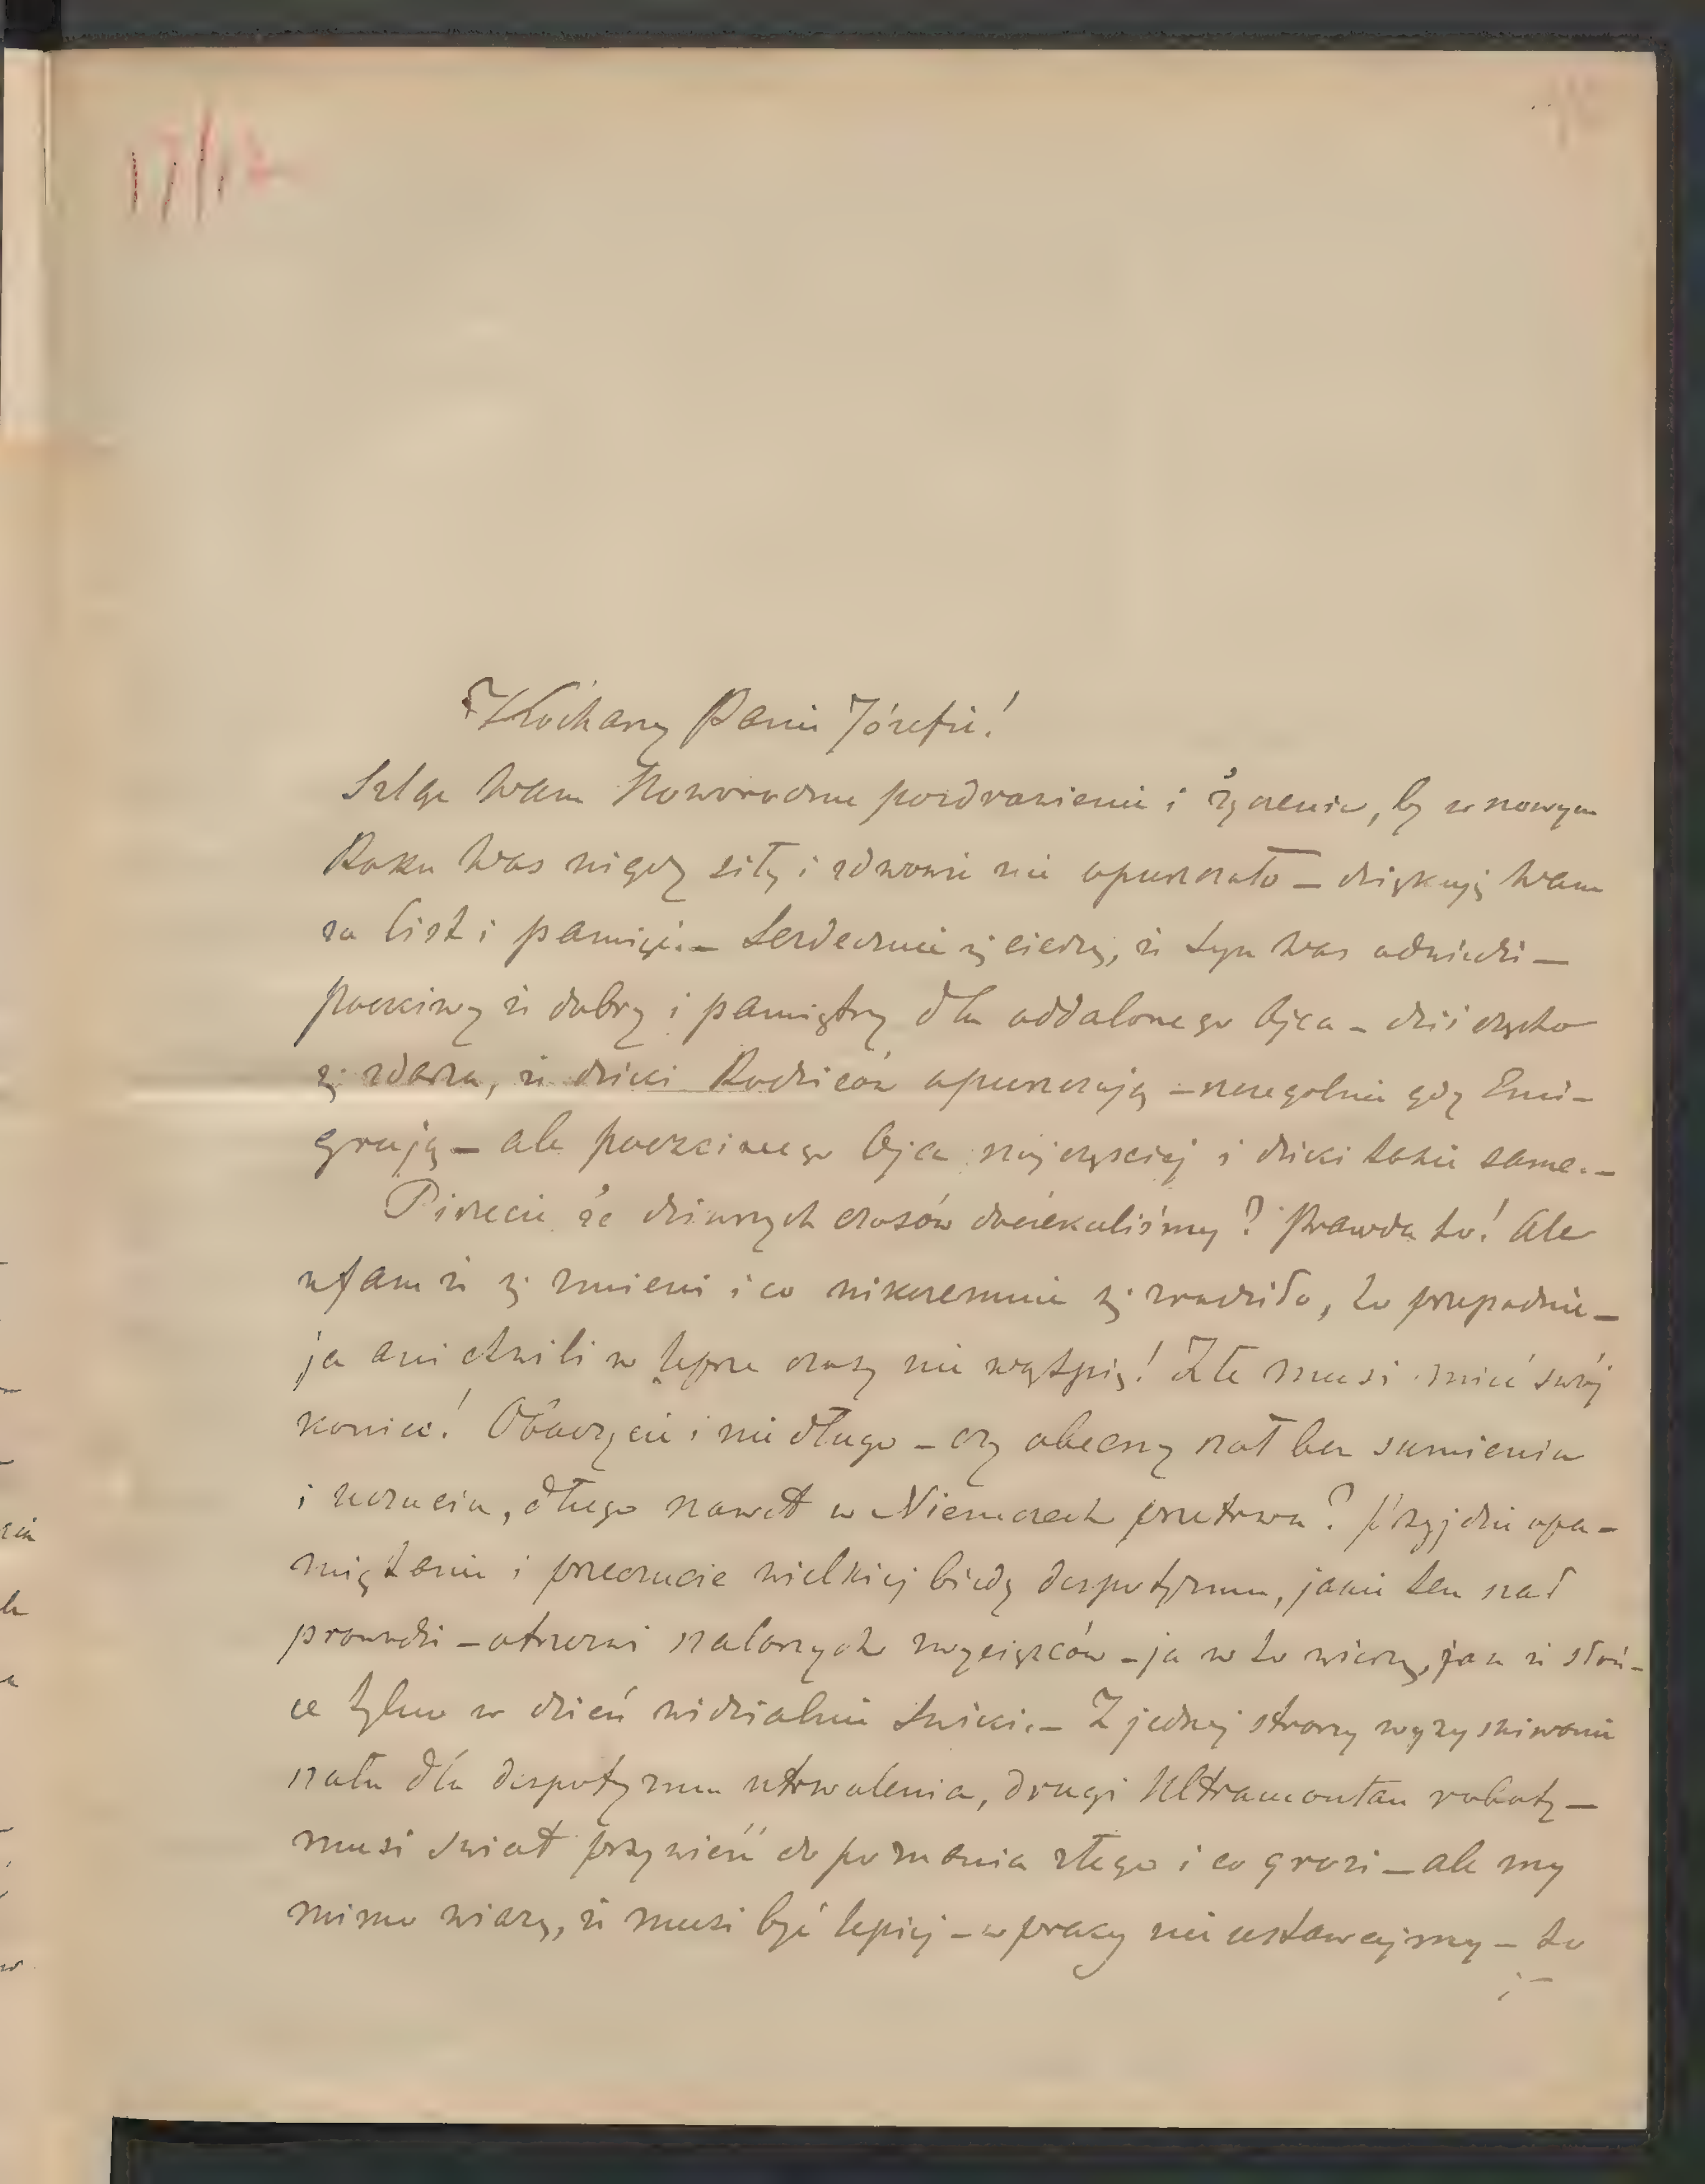 17/12
Kochany Panie Józefie!
Szlę Wam Noworoczne pozdrowienie i życzenie, by w nowym
Roku Was nigdy siły i zdrowie nie opuszczało – dziękuję Wam
za list i pamięć. – Serdecznie się cieszę, że Syn Was odwiedzi –
poczciwy że dobry i pamiętny dla oddalonego Ojca – dziś często
się zdarza, że dzieci Rodziców opuszczają – szczególnie gdy Emi-
grują – ale poczciwego Ojca najczęściej i dzieci takie same. –
Piszecie że dziwnych czasów doczekaliśmy? Prawda to! Ale
ufam że się zmieni i co nikczemnie się zrodziło, to przepadnie –
ja ani chwili w lepsze czasy nie wątpię! Złe musi mieć swój
koniec! Obaczycie i niedługo – czy obecny szał bez sumienia
i uczucia, długo nawet w Niemczech przetrwa? Przyjdzie opa-
miętanie i przeczucie wielkiej biedy despotyzmu, jakie ten szał
prowadzi – otrzeźwi szalonych zwycięzców – ja w to wierzę, jak że słoń-
ce tylko w dzień widzialnie świeci. – Z jednej strony wyzyskiwanie
szału dla despotyzmu utrwalenia, drugiej Ultramontan roboty –
musi świat przywieść do poznania złego i co grozi – ale my
mimo wiary, że musi być lepiej – w pracy nie ustawajmy – to